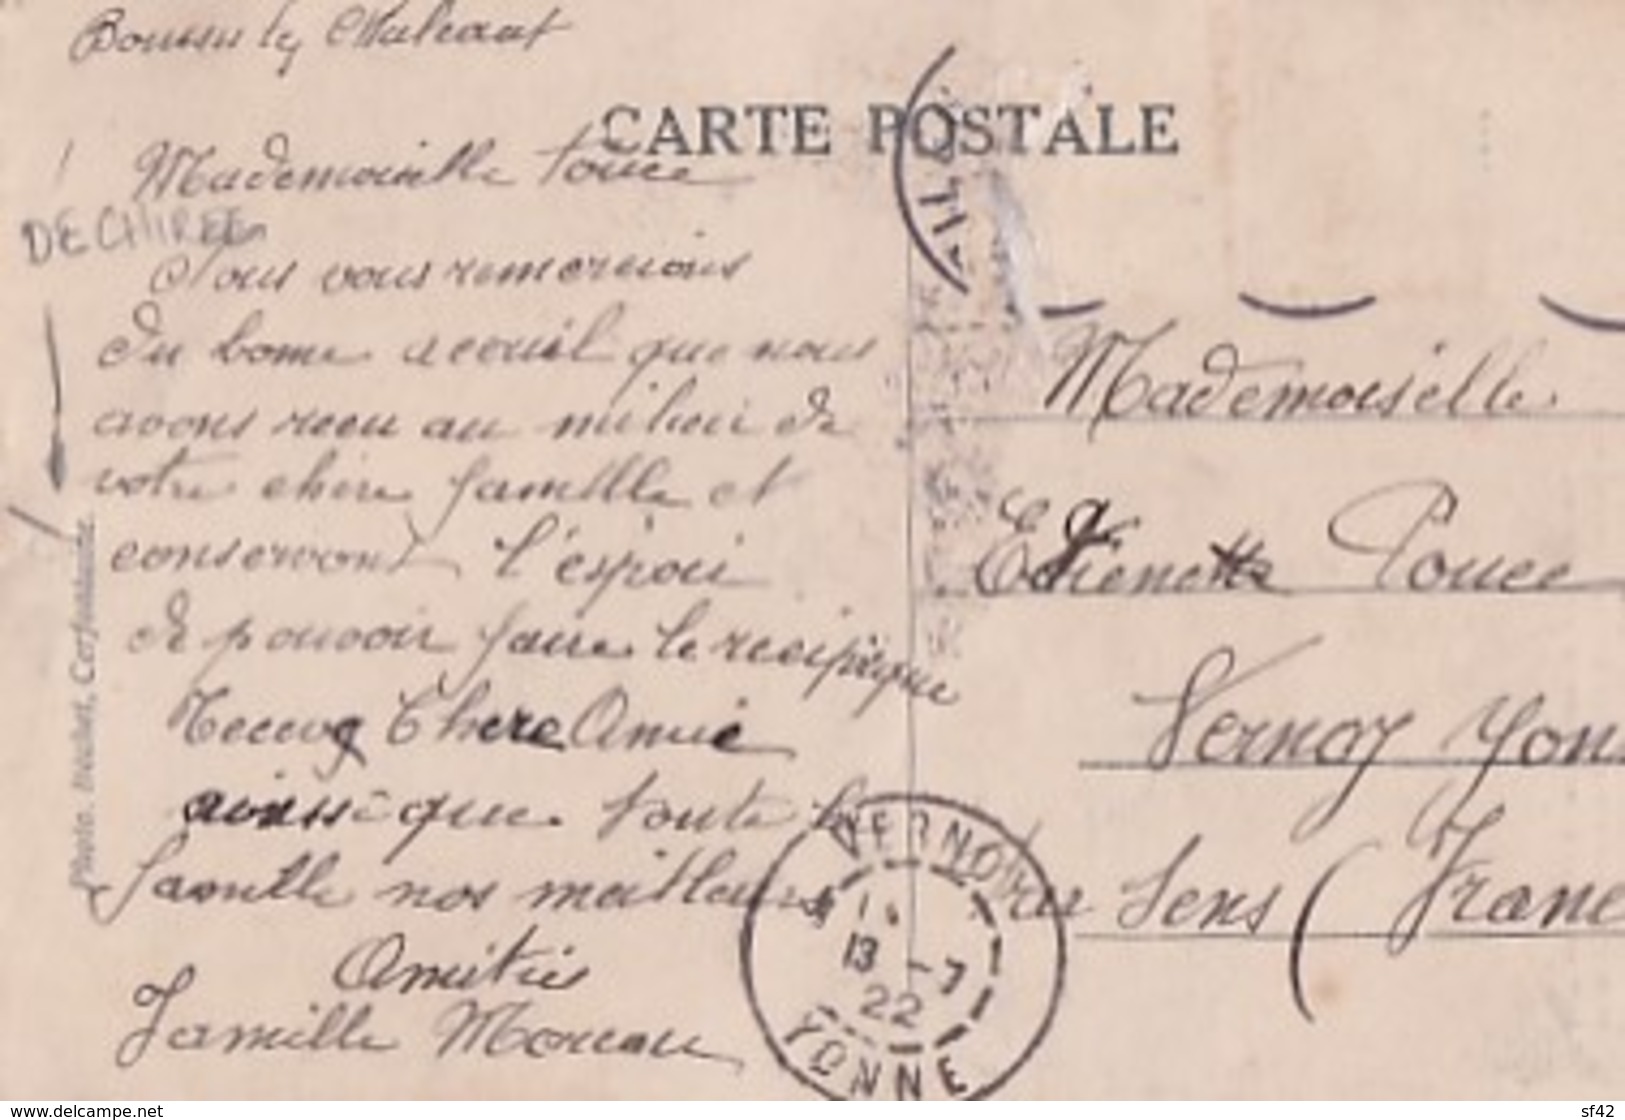 Boussu lez Walcourt
CARTE POSTALE
Mademoiselle Pouce
DECHIREE
Nous vous remercions
du bonne acceuil que nous
avons recu au milieu de
votre chere famille et
conservont l'espoir
de pouvoir faire le reciproque
Recevez Chere Amie
ainssi que toute la
famille nos meilleurs
Amitiés
Famille Moreau
Photo. Béchet, Cerfontaine.
Mademoiselle
Etienette Pouce
Vernoy Yon
par Sens (France
VERNOY
13 - 7
22
YONNE
www.delcampe.net
sf42